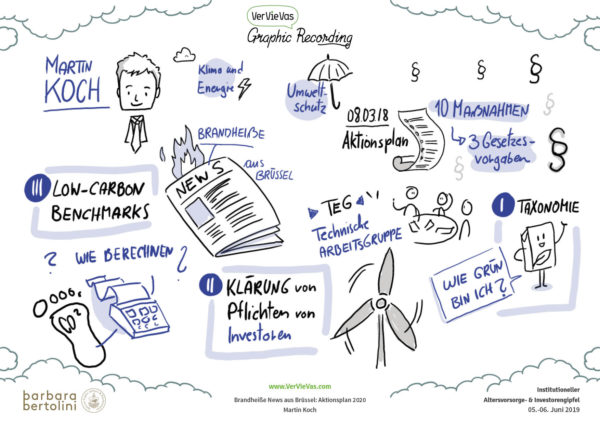 VerVieVas
Graphic Recording
MARTIN
KOCH
Klima und
Energie
Umwelt-
schutz
08.03.18
Aktionsplan
10 MAẞNAHMEN
3 Gesetzes-
vorgaben
§ § §
§
§
§
BRANDHEIẞE
NEWS
aus
BRÜSSEL
III LOW-CARBON
BENCHMARKS
? WIE BERECHNEN ?
CO²
TEG
Technische
ARBEITSGRUPPE
I TAXONOMIE
WIE GRÜN
BIN ICH?
II KLÄRUNG von
Pflichten von
Investoren
barbara
bertolini
www.VerVieVas.com
Brandheiße News aus Brüssel: Aktionsplan 2020
Martin Koch
Institutioneller
Altersvorsorge- & Investorengipfel
05.-06. Juni 2019